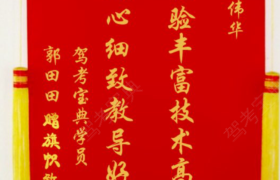 伟华
验丰富技术高
心细致教导好
驾考宝典学员
郭田田赠旗